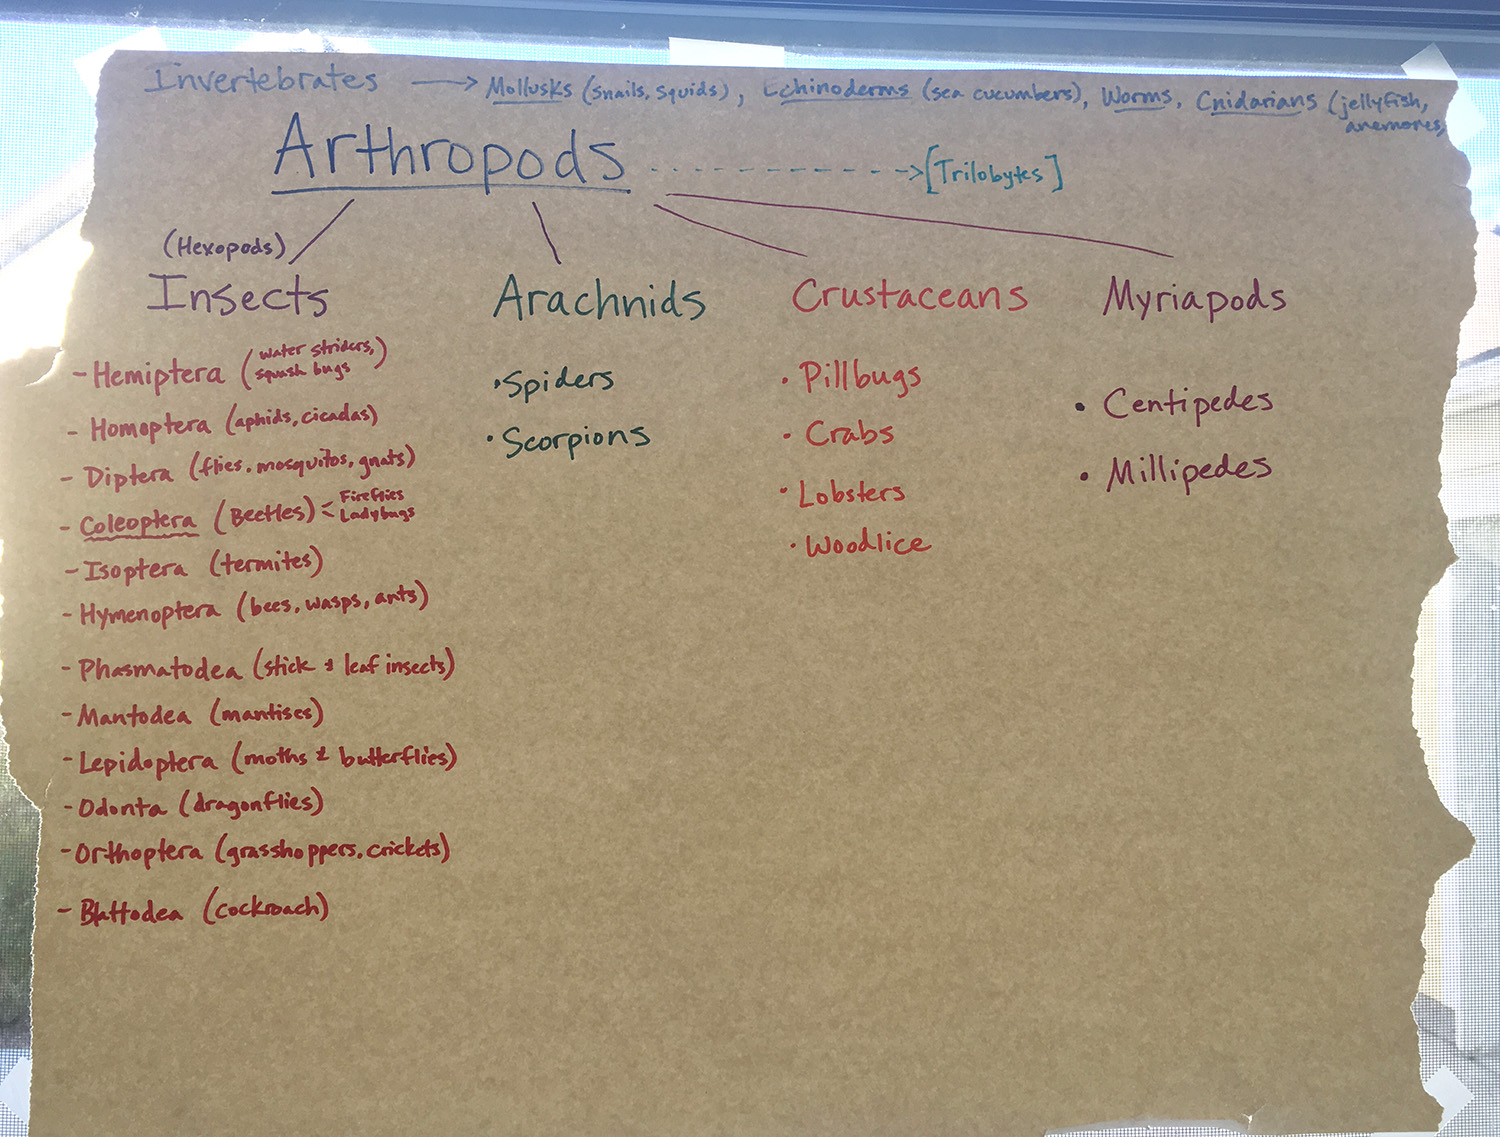 Invertebrates → Mollusks (snails, squids), Echinoderms (sea cucumbers), Worms, Cnidarians (jellyfish,
anemones,
Arthropods - - - -> [Trilobytes]
(Hexopods)
Insects
- Hemiptera (water striders,
squash bugs)
- Homoptera (aphids, cicadas)
- Diptera (flies, mosquitos, gnats)
- Coleoptera (Beetles) < Fireflies
Ladybugs
- Isoptera (termites)
- Hymenoptera (bees, wasps, ants)
- Phasmatodea (stick & leaf insects)
- Mantodea (mantises)
- Lepidoptera (moths & butterflies)
- Odonta (dragonflies)
- Orthoptera (grasshoppers, crickets)
- Blattodea (cockroach)
Arachnids
• Spiders
• Scorpions
Crustaceans
• Pillbugs
• Crabs
• Lobsters
• Woodlice
Myriapods
• Centipedes
• Millipedes